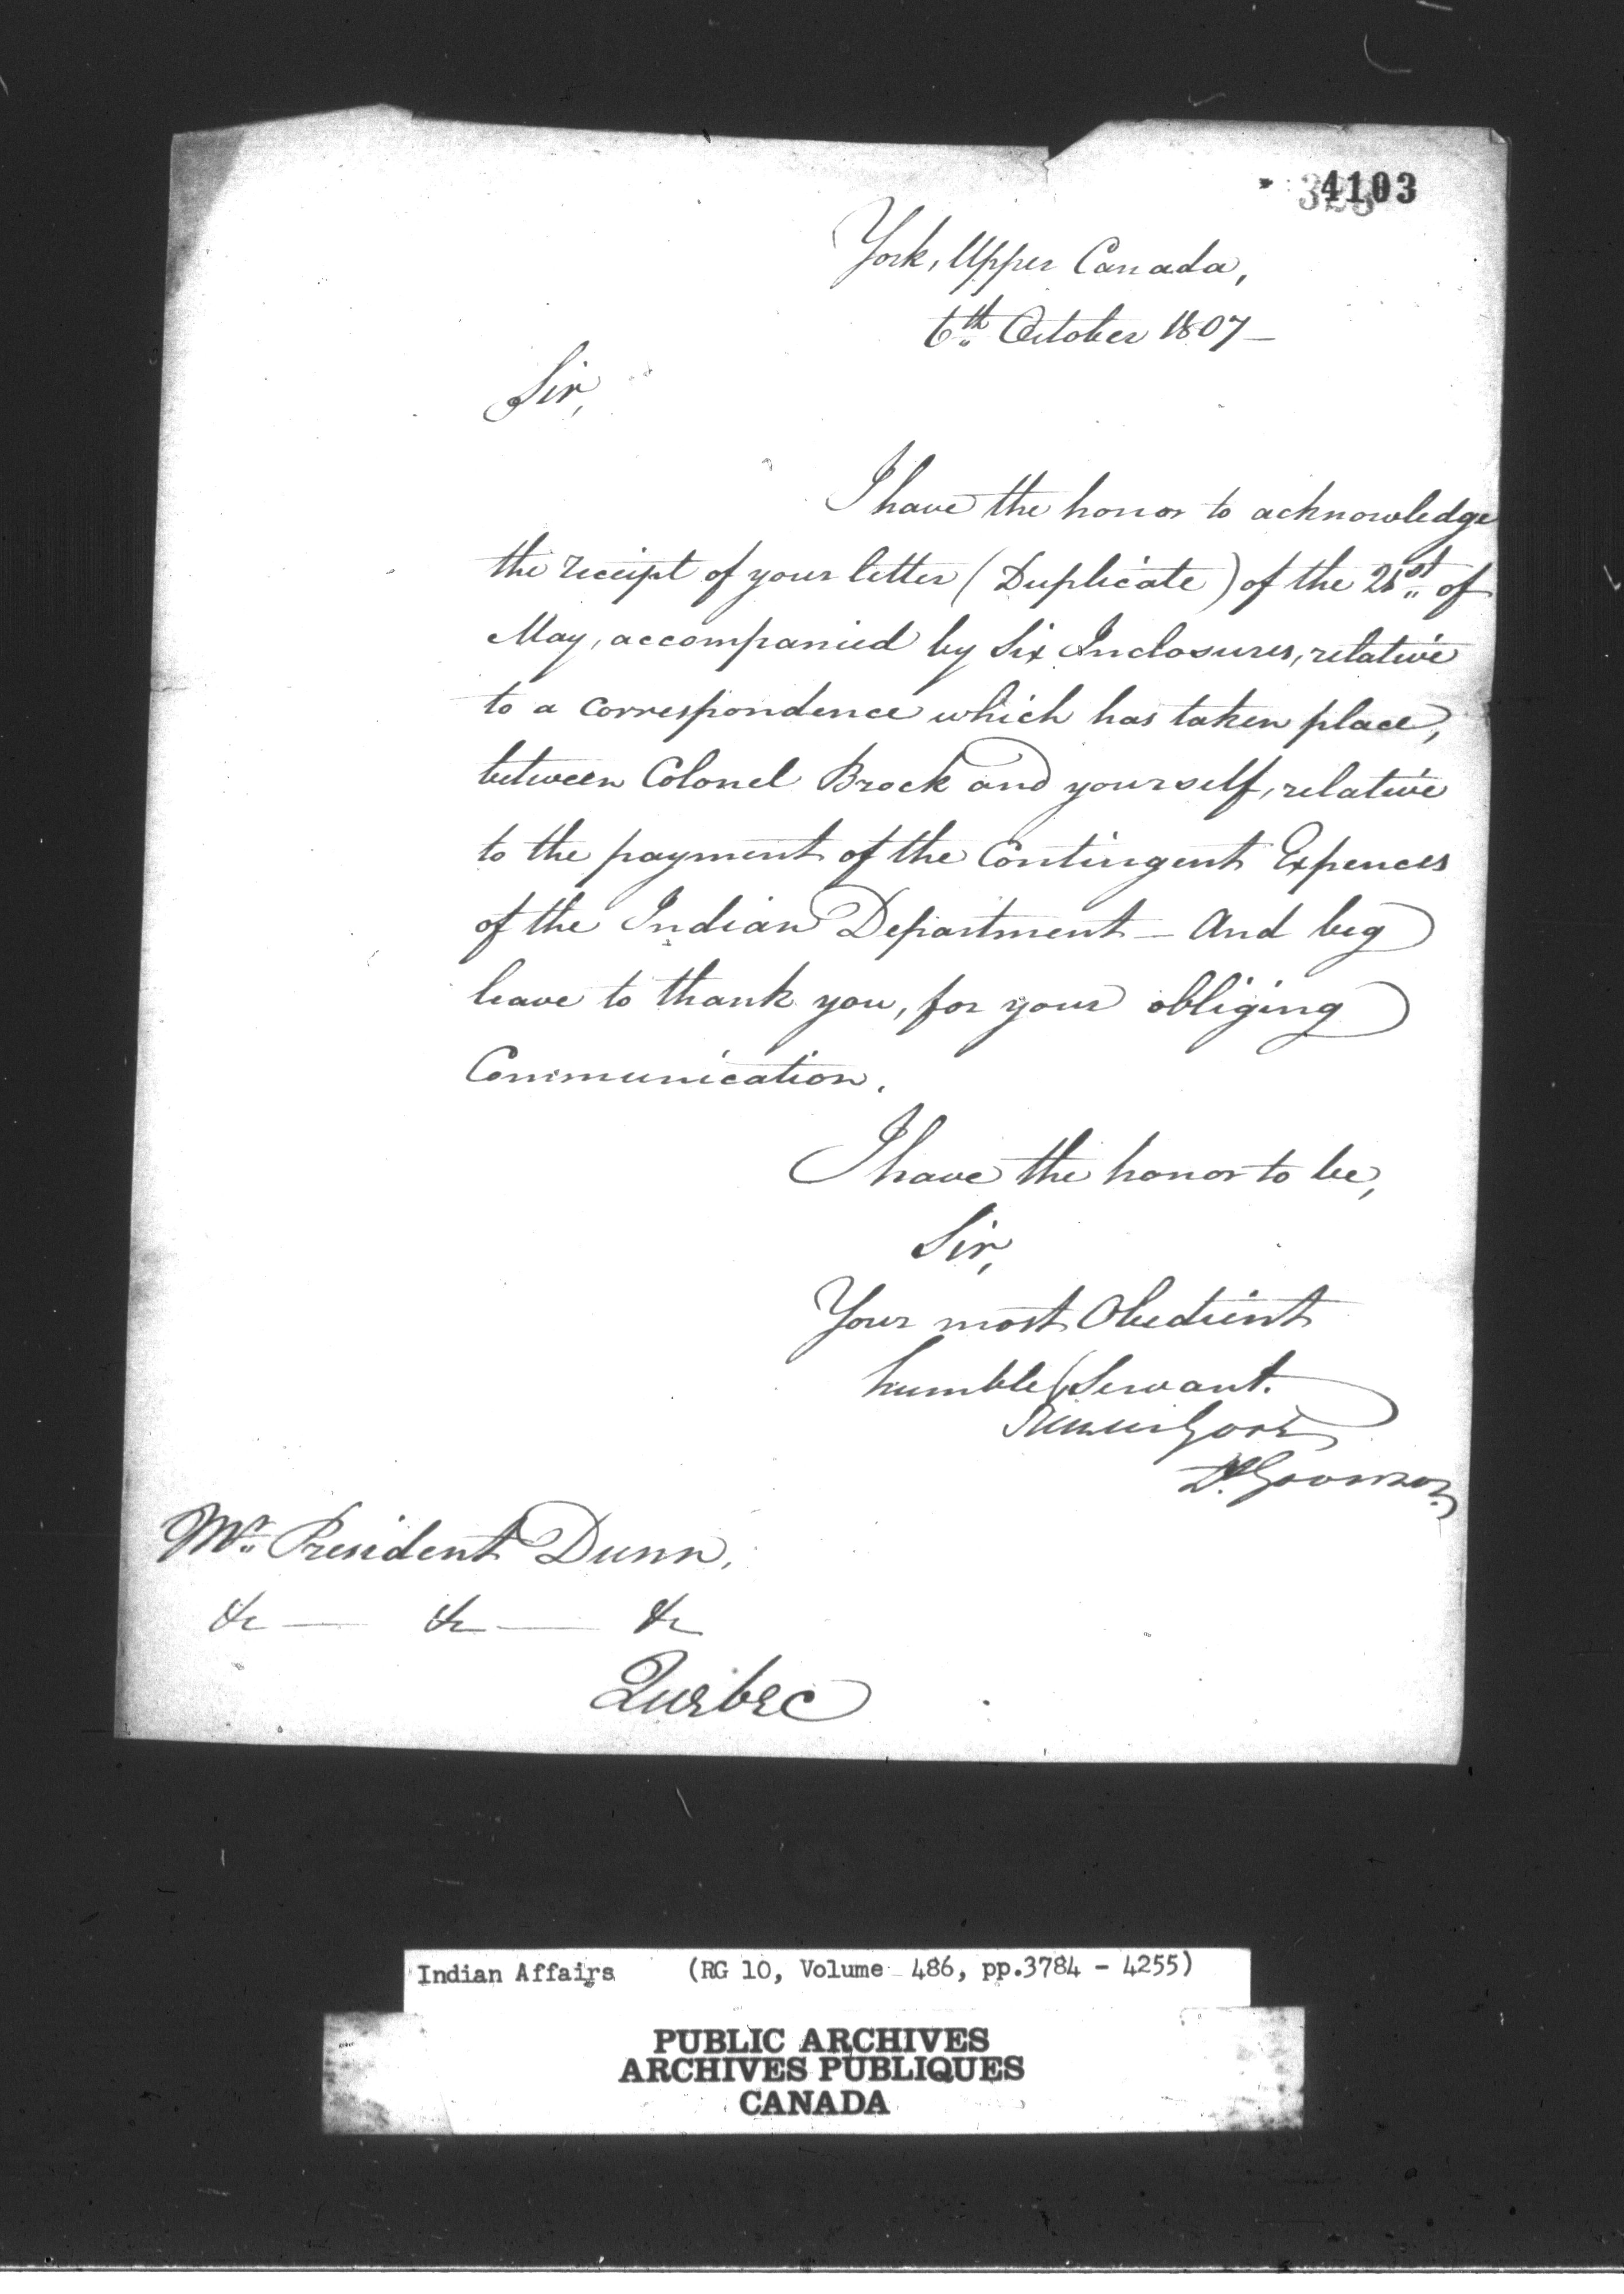 4103
York, Upper Canada,
6th October 1807 —
Sir,
I have the honor to acknowledge
the receipt of your letter (Duplicate) of the 21st of
May, accompanied by Six Inclosures, relative
to a Correspondence which has taken place,
between Colonel Brock and yourself, relative
to the payment of the Contingent Expences
of the Indian Department — And beg
leave to thank you, for your obliging
Communication.
I have the honor to be,
Sir,
Your most Obedient
humble Servant.
Francis Gore
Lt Governor
Mr President Dunn,
&c — &c — &c
Quebec
Indian Affairs (RG 10, Volume 486, pp.3784 - 4255)
PUBLIC ARCHIVES
ARCHIVES PUBLIQUES
CANADA